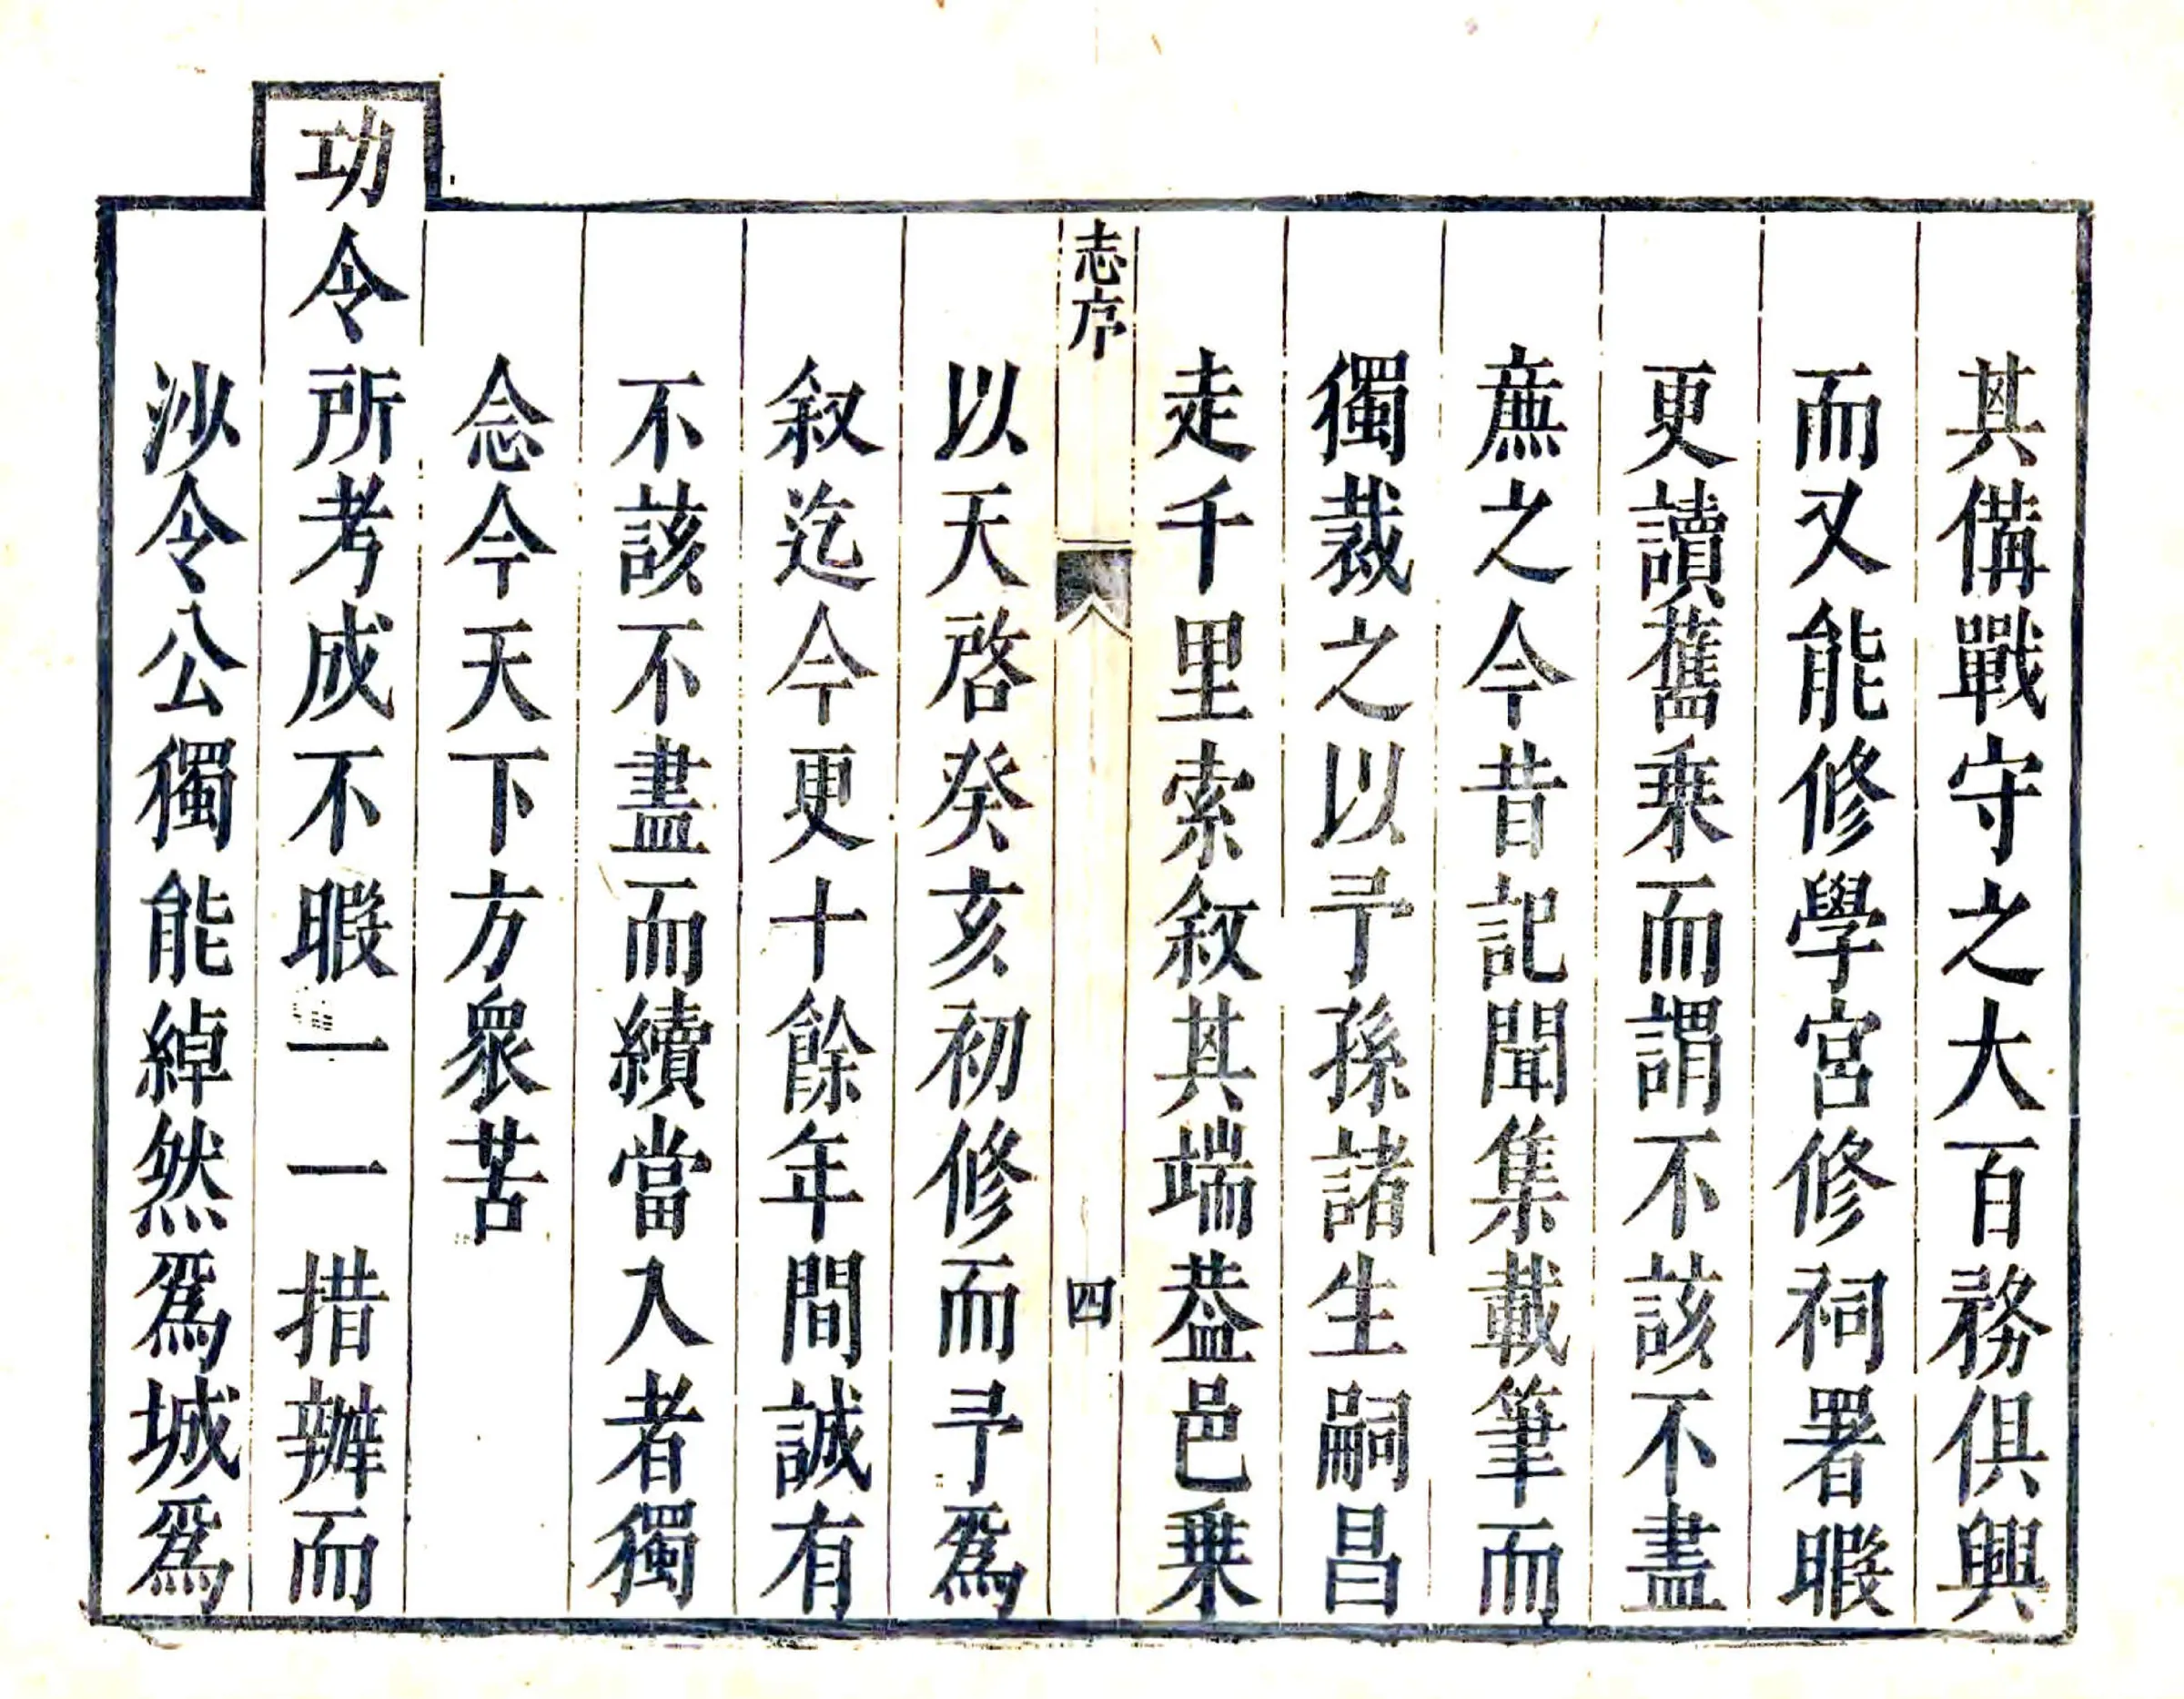 其備戰守之大百務俱興
而又能修學宮修祠署暇
更讀舊乗而謂不該不盡
廡之今昔記聞集載筆而
獨裁之以予孫諸生嗣昌
走千里索叙其端葢邑乗
志序
四
以天啓癸亥初修而予爲
叙迄今更十餘年間誠有
不該不盡而續當入者獨
念今天下方衆苦
功令所考成不暇一一措辦而
沙令公獨能綽然爲城爲